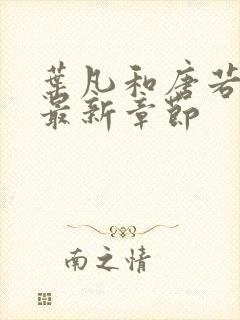 葉凡和唐若
最新章節
南之情